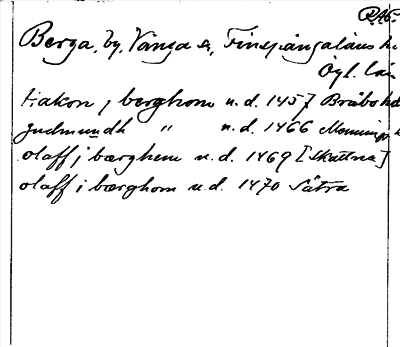 RAÖ.
Berga, by, Vånga s., Finspångaläns h.
Ögl. län
Hakon j berghom u.d. 1457 Bråbo
gudmundh " u.d. 1466
olaff j bærghem u.d. 1469 [Skattna]
olaff i bærghom u.d. 1470 Sätra